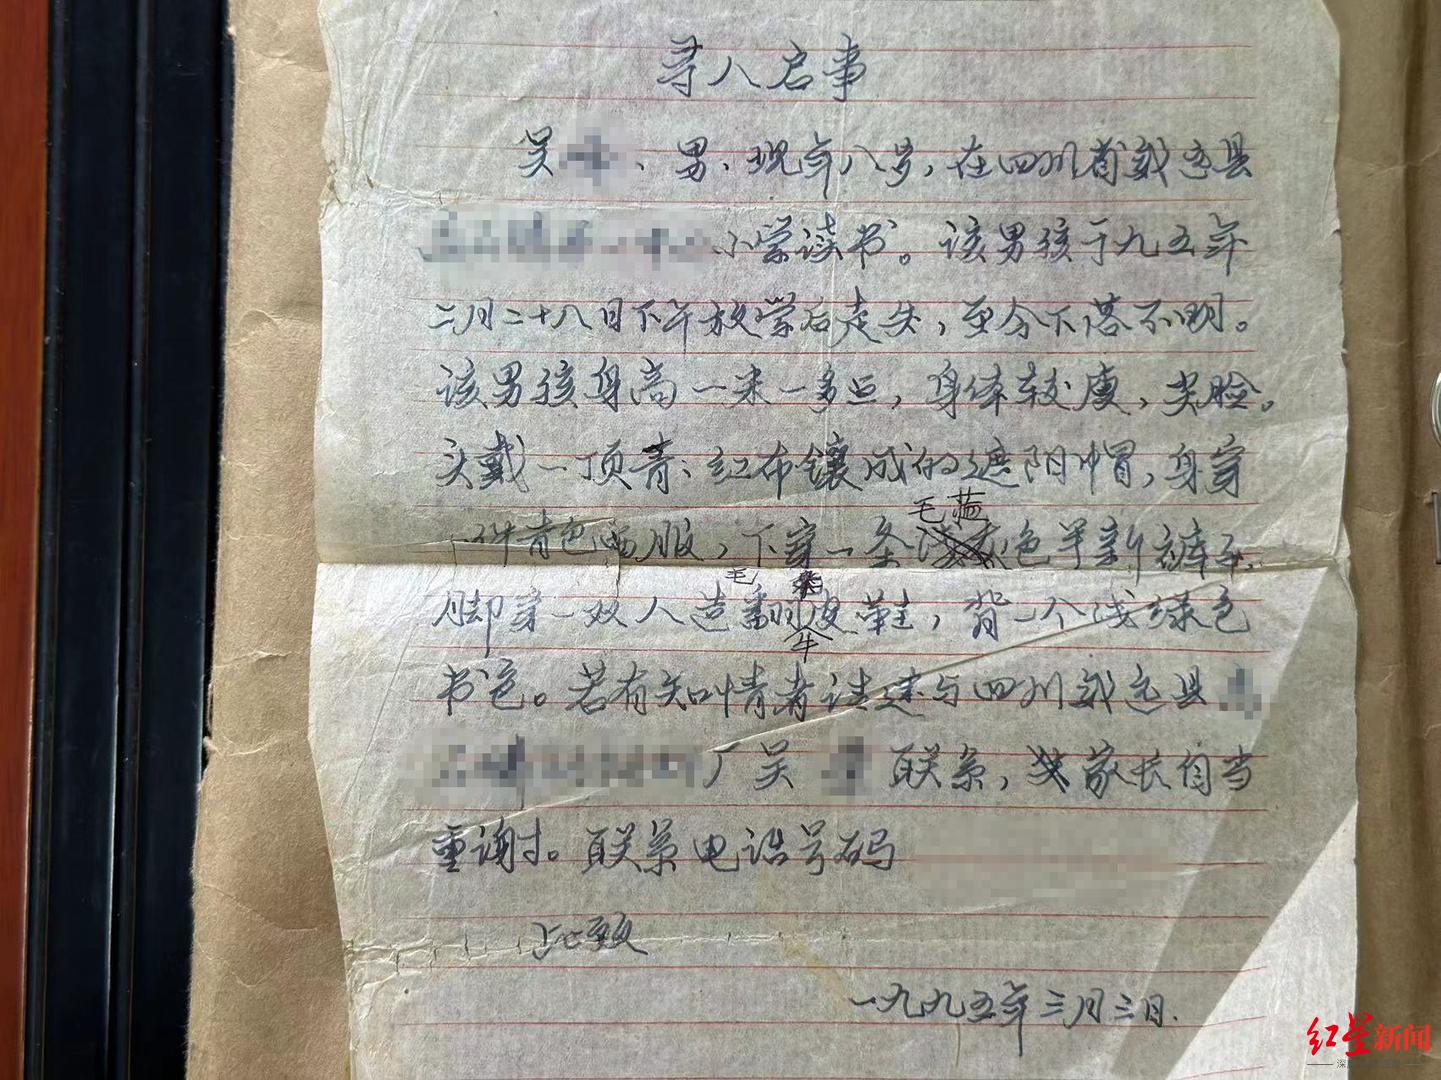 寻人启事
吴 、男、现年八岁,在四川省威远县
小学读书。该男孩于九五年
二月二十八日下午放学后走失,至今下落不明。
该男孩身高一米一多点,身体较瘦,尖脸。
头戴一顶青、红布镶成的遮阳帽,身穿
毛蓝
一件青色西服,下穿一条 色半新裤子,
毛
脚穿一双人造翻皮鞋,背一个浅绿色
牛
书包。若有知情者请速与四川威远县
厂吴 联系,家长自当
重谢。联系电话号码
此致
一九九五年三月三日.
红星新闻